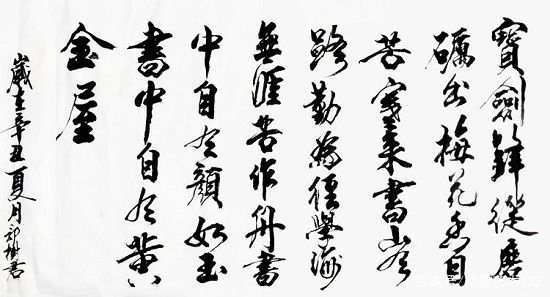 寶劍鋒從磨
礪出梅花香自
苦寒来書山有
路勤為徑學海
無涯苦作舟書
中自有顏如玉
書中自有黄
金屋
歲在辛丑夏月